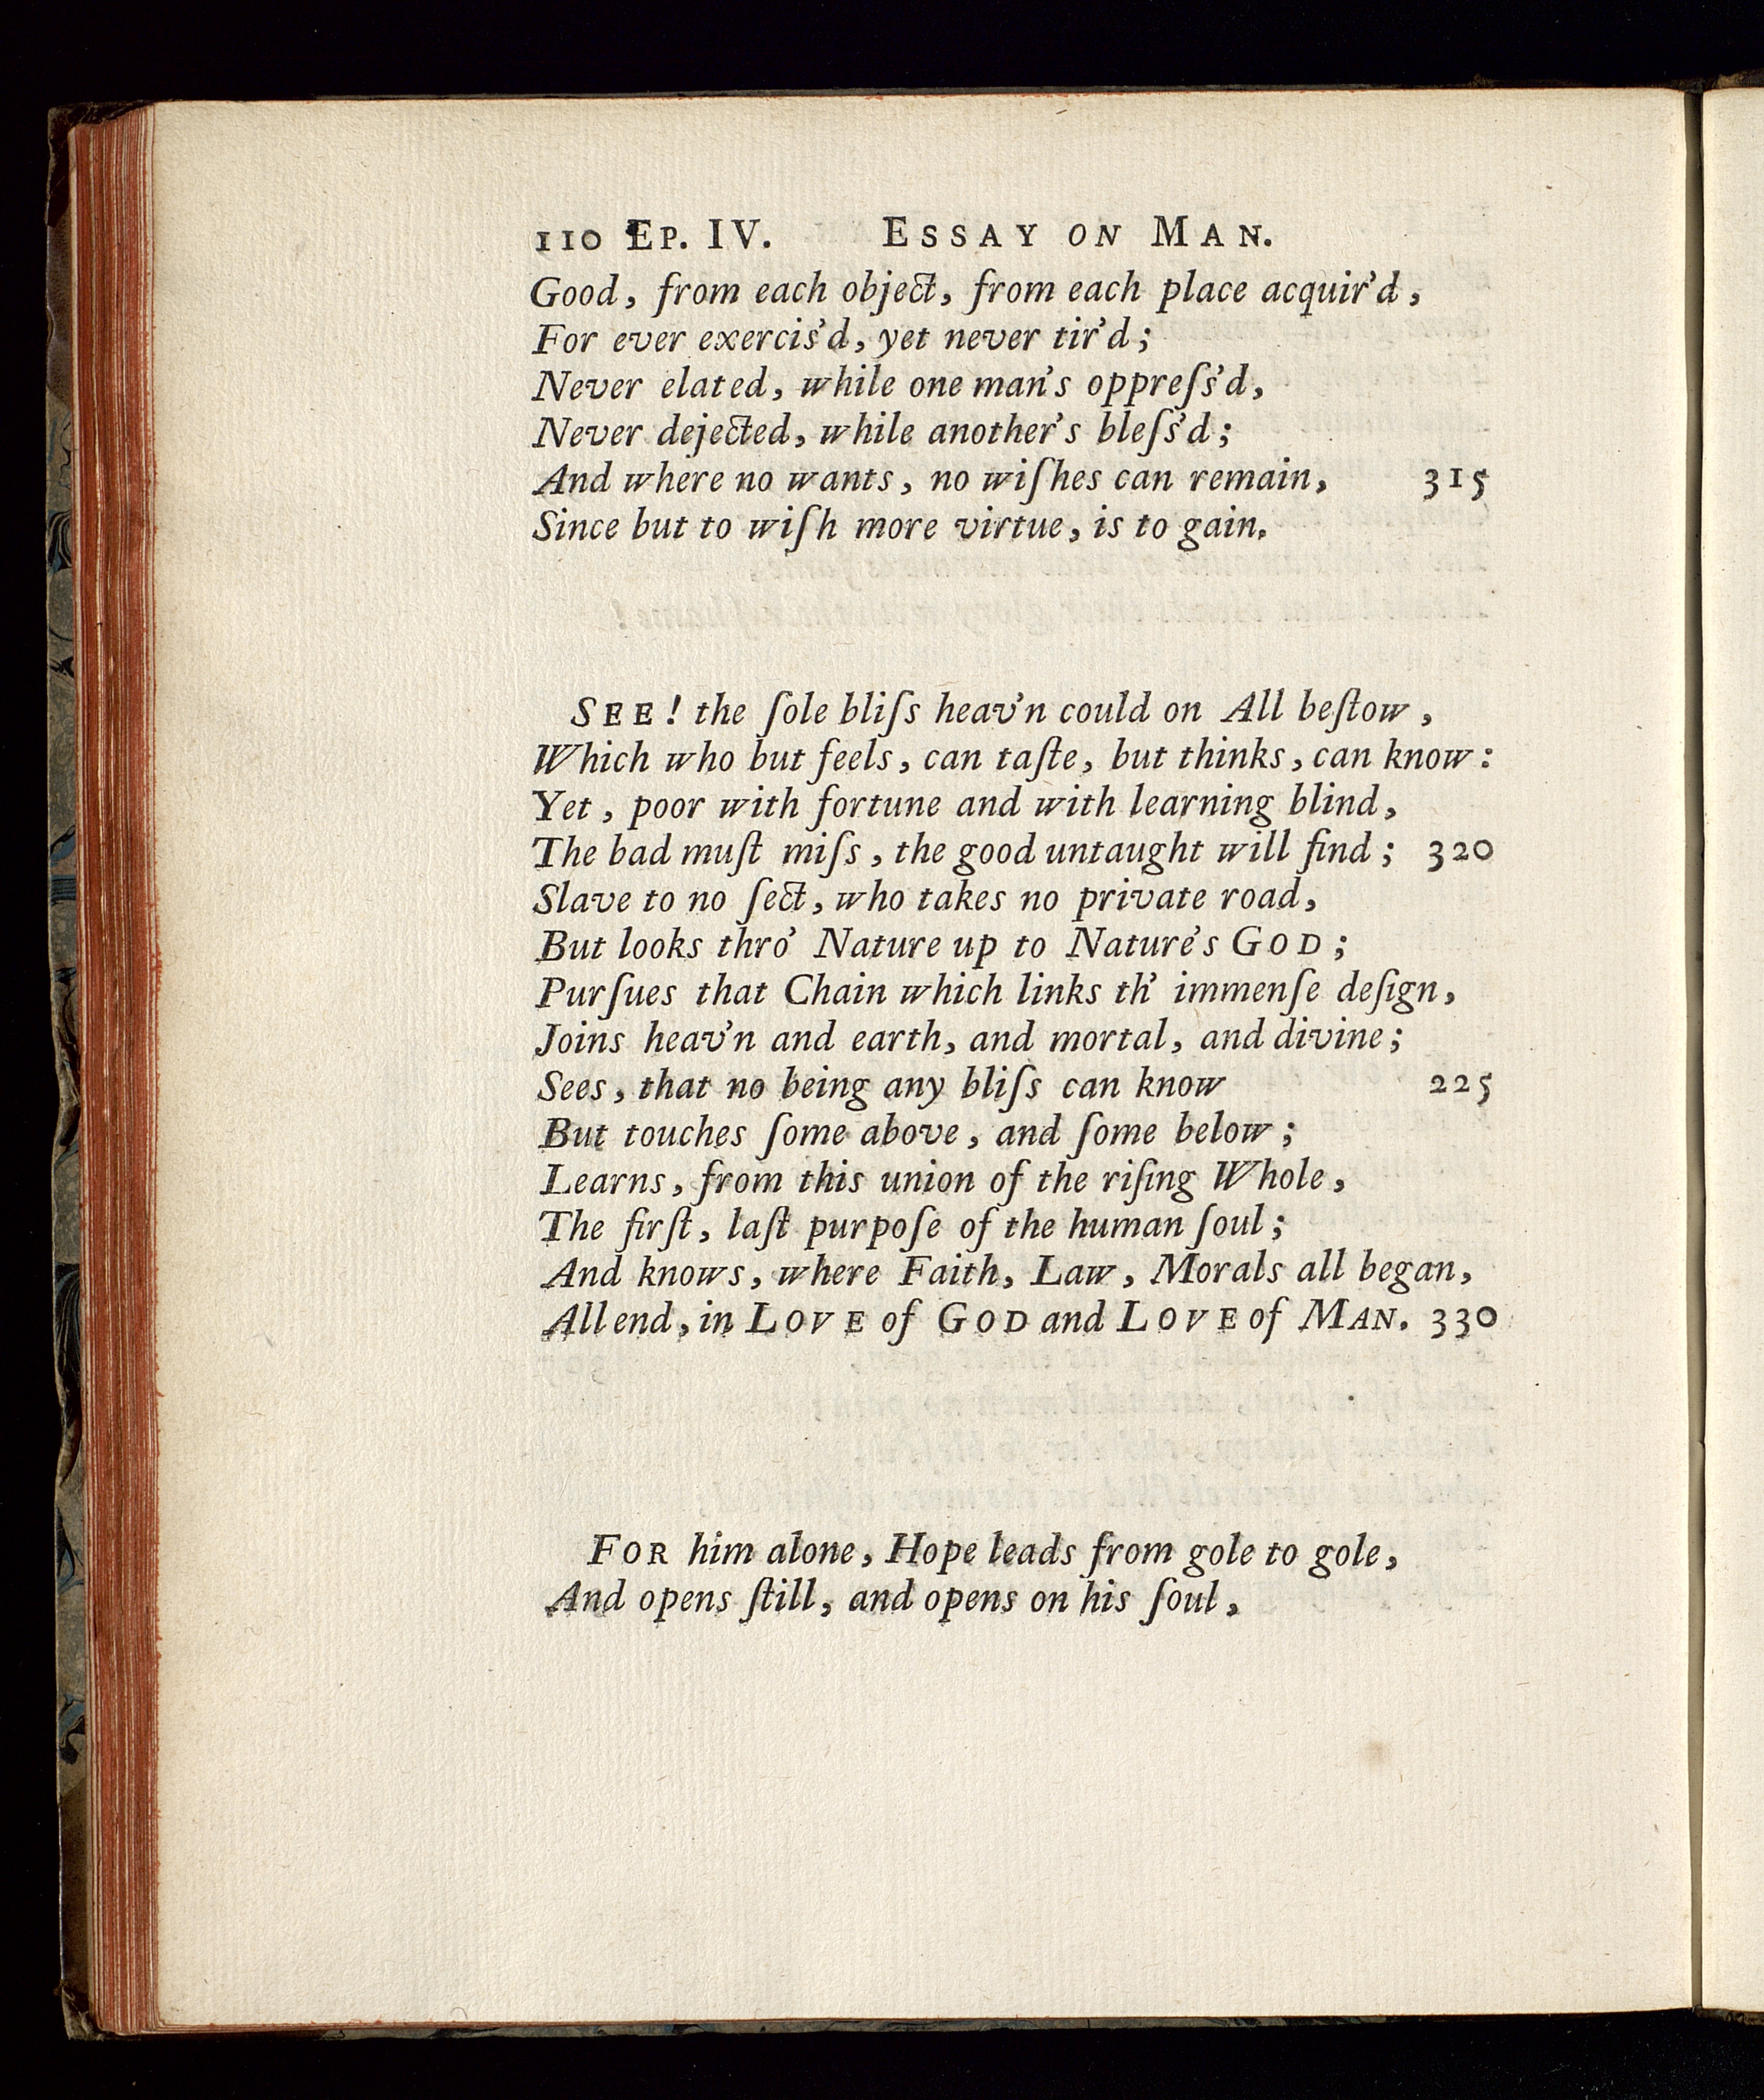 110 EP. IV. ESSAY ON MAN.
Good, from each object, from each place acquir'd,
For ever exercis'd, yet never tir'd;
Never elated, while one man's oppreſs'd,
Never dejected, while another's bleſs'd;
And where no wants, no wiſhes can remain, 315
Since but to wiſh more virtue, is to gain.
SEE! the ſole bliſs heav'n could on All beſtow,
Which who but feels, can taſte, but thinks, can know:
Yet, poor with fortune and with learning blind,
The bad muſt miſs, the good untaught will find; 320
Slave to no ſect, who takes no private road,
But looks thro' Nature up to Nature's GOD;
Purſues that Chain which links th' immenſe deſign,
Joins heav'n and earth, and mortal, and divine;
Sees, that no being any bliſs can know 225
But touches ſome above, and ſome below;
Learns, from this union of the riſing Whole,
The firſt, laſt purpoſe of the human ſoul;
And knows, where Faith, Law, Morals all began,
All end, in LOVE of GOD and LOVE of MAN. 330
FOR him alone, Hope leads from gole to gole,
And opens ſtill, and opens on his ſoul,